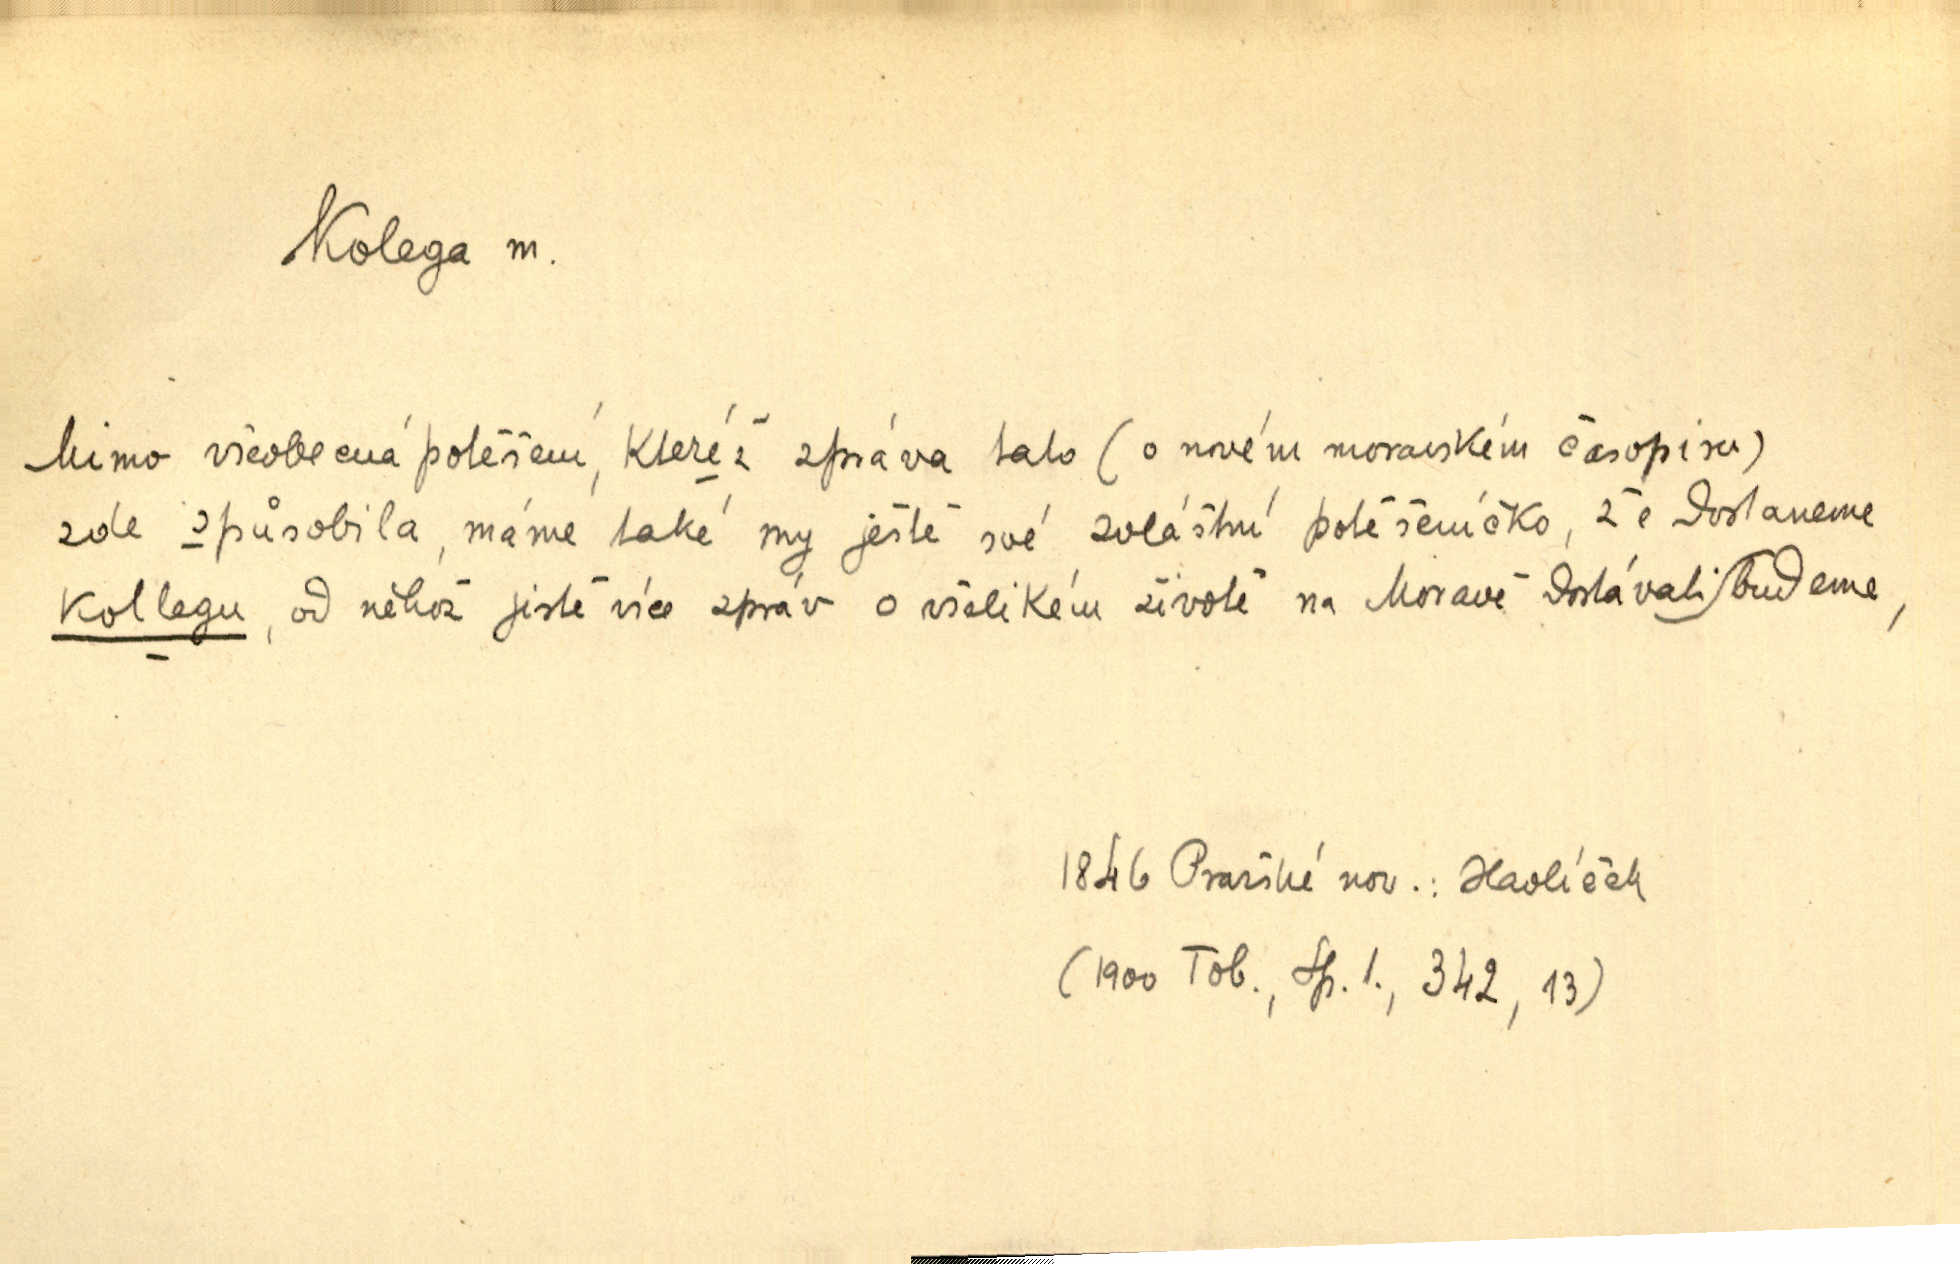 Kolega m.
Mimo všeobecná potěšení, kteréž zpráva tato (o novém moravském časopisu)
zde způsobila, máme také my ještě své zvláštní potěšeníčko, že dostaneme
kollegu, od něhož jistě více zpráv o všelikém životě na Moravě dostávati budeme,
1846 Pražské nov.: Havlíček
(1900 Tob., Sp. 1., 342, 13)